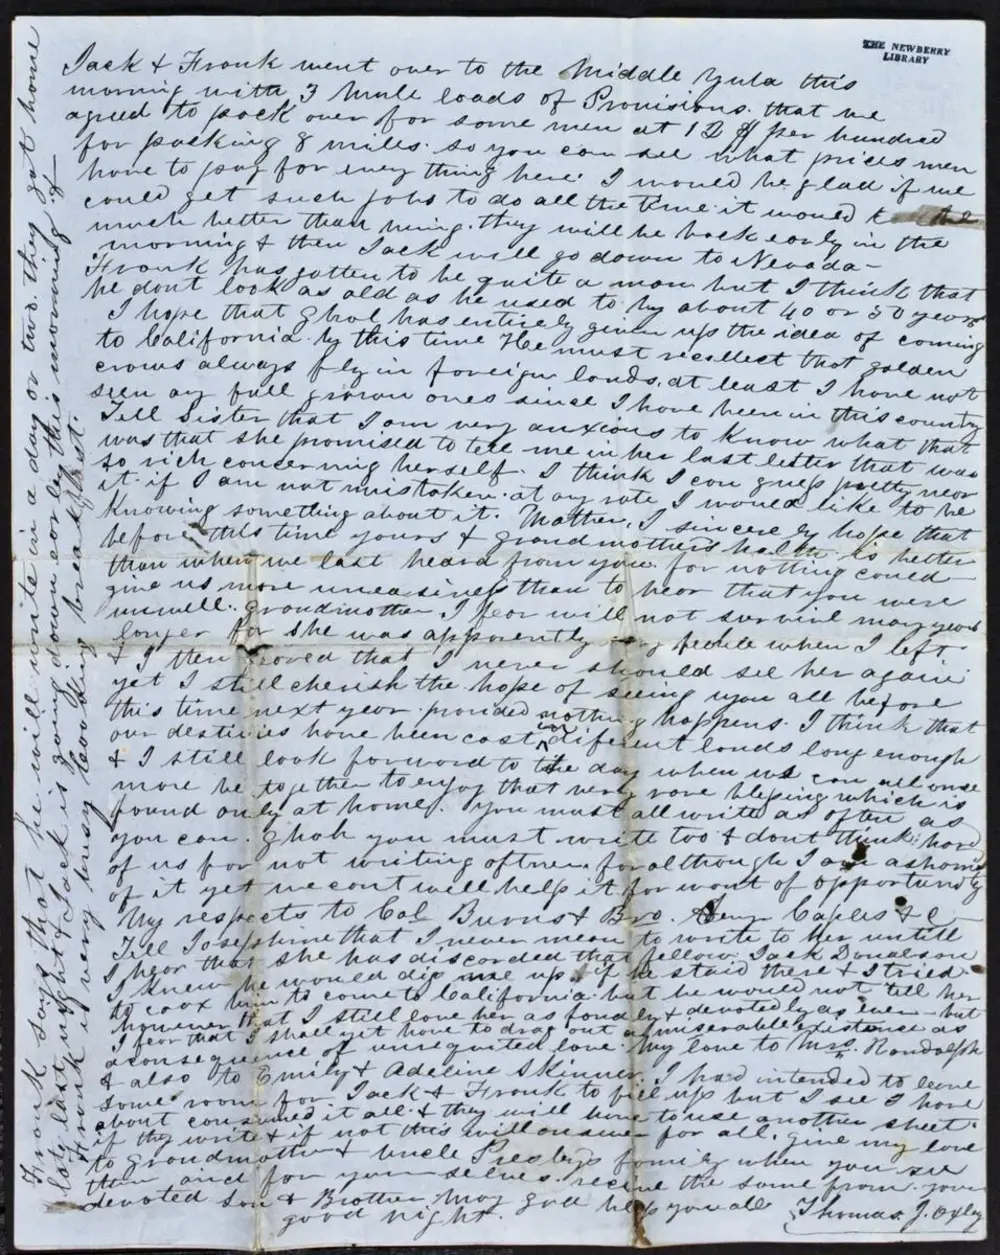 THE NEWBERRY
LIBRARY
Jack & Frank went over to the Middle Yuba this
morning with 3 Mule loads of Provisions. that we
agreed to pack over for some men at 12 $ per hundred
for packing 8 miles. so you can see what prices men
have to pay for every thing here. I would be glad if we
could get such jobs to do all the time it would be
much better than mining. they will be back early in the
morning & then Jack will go down to Nevada -
Frank has gotten to be quite a man but I think that
he dont look as old as he used to by about 40 or 50 years
I hope that has entirely given up the idea of coming
to California by this time He must recollect that golden
crows always fly in foreign lands, at least I have not
seen any full grown ones since I have been in this country
Tell Sister that I am very anxious to know what that
was that she promised to tell me in her last letter that was
so rich concerning herself. I think I can guess pretty near
it. if I am not mistaken. at any rate I would like to be
knowing something about it. Mother, I sincerely hope that
before this time yours & grandmothers health is better
than when we last heard from you. for nothing could
give us more uneasiness than to hear that you were
unwell. grandmother I fear will not survive many years
longer for she was apparently very feeble when I left
& I then that I never should see her again
yet I still cherish the hope of seeing you all before
this time next year. provided nothing happens. I think that
our destinies have been cast in different lands long enough
& I still look forward to the day when we can all once
more be together to enjoy that very rare blessing which is
found only at home. you must all write as often as
you can. you must write too & dont think hard
of us for not writing oftener. for although I am ashamed
of it yet we cant well help it for want of opportunity
My respects to Cal Burns & Bro. Caples & C -
Tell Josephine that I never mean to write to her untill
I hear that she has discarded that fellow. Jack Donalson
I knew he would dig me up if he staid there & I tried
to coax him to come to California. but he would not tell her
however that I still love her as fondly & devotedly as ever - but
I fear that I shall yet have to drag out a miserable existence as
a consequence of unrequited love. My love to Mrs. Randolph
& also to Emily & Adeline Skinner. I had intended to leave
some room for Jack & Frank to fill up but I see I have
about consumed it all. & they will have to use another sheet.
if they write & if not this will answer for all. give my love
to grandmother & uncle Presley's family when you see
them and for yourselves. recieve the same from your
devoted son & Brother May god help you all
good night. Thomas. J. Oxley
Frank says that he will write in a day or two. they got home
late last night & Jack is going down early this morning &
Frank is very busy cooking breakfast.